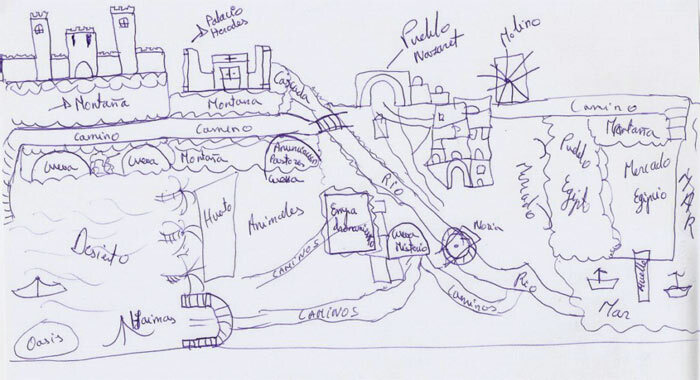 Palacio
Herodes
Pueblo
Nazaret
Molino
Montaña
Montaña
Cascada
Camino
Camino
Camino
Cueva
Cueva
Montaña
Anunciación
Pastores
Cueva
Río
Montaña
Pueblo
Egipt
Mercado
Egipcio
Mercado
MAR
Huerto
Animales
Desierto
Cueva
Misterio
Noria
CAMINOS
Caminos
Río
Muelle
Mar
Jaimas
CAMINOS
Oasis